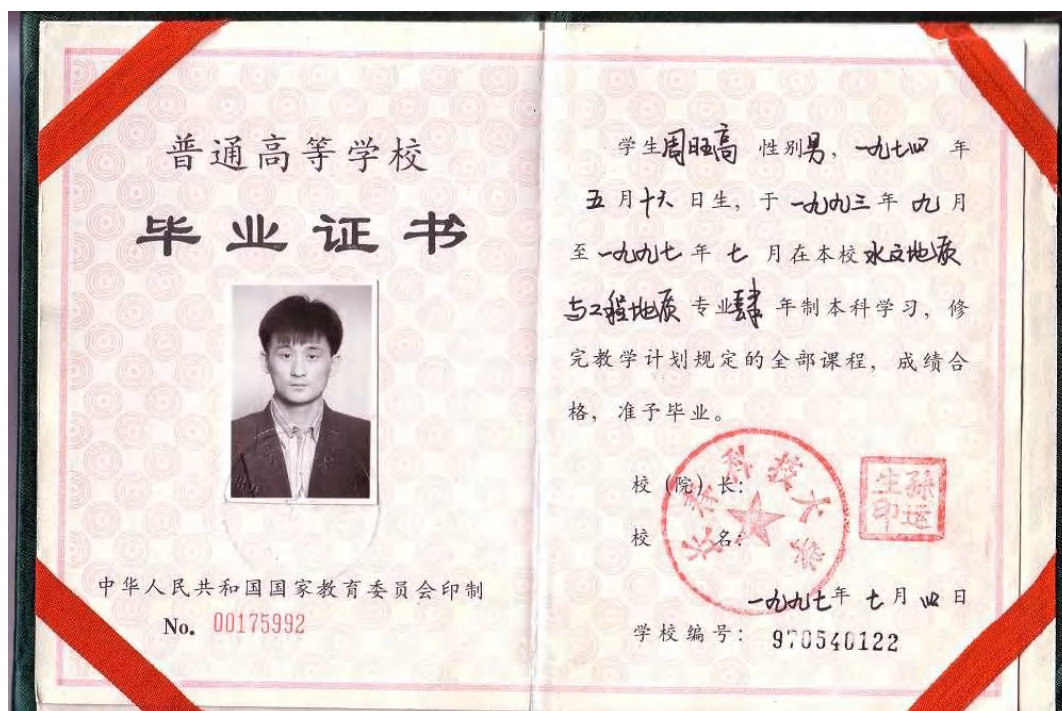 普通高等学校
毕业证书
中华人民共和国国家教育委员会印制
No. 00175992
学生周旺高 性别男，一九七四 年
五月十六日生，于一九九三年 九月
至一九九七年 七 月在本校水文地质
与工程地质 专业肆 年制本科学习，修
完教学计划规定的全部课程，成绩合
格，准予毕业。
校（院）长：
孙运生印
校 名：
长春科技大学
一九九七年 七月 四日
学校编号： 970540122